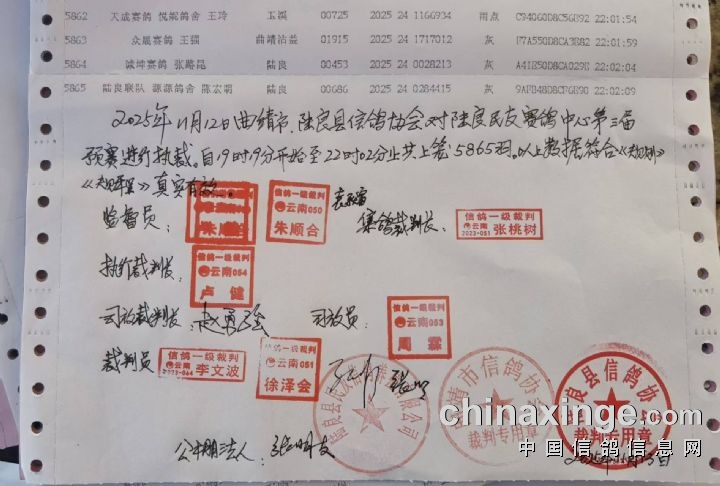 5862 天成赛鸽 悦妮鸽舍 王玲 玉溪 00725 2025 24 1166934 雨点 C94060D8C56B92 22:01:54
5863 众晟赛鸽 王猛 曲靖沾益 01915 2025 24 1717012 灰 22:01:59
5864 诚坤赛鸽 张路昆 陆良 00453 2025 24 0028213 灰 22:02:04
5865 陆良联队 源源鸽舍 陈宏明 陆良 00686 2025 24 0284415 灰 22:02:09
2025年11月12日曲靖市、陆良县信鸽协会对陆良民友赛鸽中心第三届
预赛进行执裁,自19时19分开始至22时02分止共上笼5865羽。以上数据符合《规则》
真实有效。
监督员:
朱顺合
信鸽一级裁判
云南050
朱顺合
集鸽裁判长:
信鸽一级裁判
云南
2023-051 张桃树
执行裁判长:
信鸽一级裁判
云南054
卢健
司放裁判长: 赵勇强
司放员:
信鸽一级裁判
云南053
周霖
裁判员
信鸽一级裁判
云南
李文波
信鸽一级裁判
云南051
徐泽会
陆良县信鸽协会
裁判专用章
裁判专用章
公棚法人:
chinaxinge.com
中国信鸽信息网